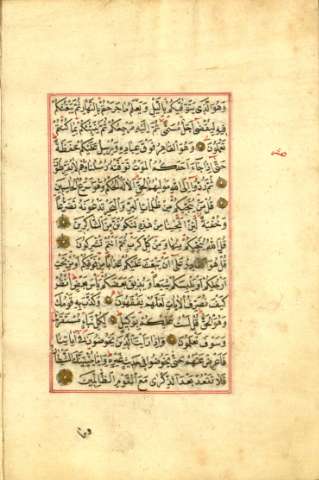 وَهُوَ الَّذِي يَتَوَفّٰيكُمْ بِاللَّيْلِ وَيَعْلَمُ مَا جَرَحْتُمْ بِالنَّهَارِ ثُمَّ يَبْعَثُكُمْ
فِيهِ لِيُقْضٰى اَجَلٌ مُسَمًّى ثُمَّ اِلَيْهِ مَرْجِعُكُمْ ثُمَّ يُنَبِّئُكُمْ بِمَا كُنْتُمْ
تَعْمَلُونَ وَهُوَ الْقَاهِرُ فَوْقَ عِبَادِهِ وَيُرْسِلُ عَلَيْكُمْ حَفَظَةً
حَتّٰى اِذَا جَاءَ اَحَدَكُمُ الْمَوْتُ تَوَفَّتْهُ رُسُلُنَا وَهُمْ لَا يُفَرِّطُونَ
ثُمَّ رُدُّوا اِلَى اللّٰهِ مَوْلٰيهُمُ الْحَقِّ اَلَا لَهُ الْحُكْمُ وَهُوَ اَسْرَعُ الْحَاسِبِينَ
قُلْ مَنْ يُنَجِّيكُمْ مِنْ ظُلُمَاتِ الْبَرِّ وَالْبَحْرِ تَدْعُونَهُ تَضَرُّعًا
وَخُفْيَةً لَئِنْ اَنْجٰينَا مِنْ هٰذِهِ لَنَكُونَنَّ مِنَ الشَّاكِرِينَ
قُلِ اللّٰهُ يُنَجِّيكُمْ مِنْهَا وَمِنْ كُلِّ كَرْبٍ ثُمَّ اَنْتُمْ تُشْرِكُونَ
قُلْ هُوَ الْقَادِرُ عَلٰى اَنْ يَبْعَثَ عَلَيْكُمْ عَذَابًا مِنْ فَوْقِكُمْ اَوْ مِنْ تَحْتِ
اَرْجُلِكُمْ اَوْ يَلْبِسَكُمْ شِيَعًا وَيُذِيقَ بَعْضَكُمْ بَأْسَ بَعْضٍ اُنْظُرْ
كَيْفَ نُصَرِّفُ الْاٰيَاتِ لَعَلَّهُمْ يَفْقَهُونَ وَكَذَّبَ بِهِ قَوْمُكَ
وَهُوَ الْحَقُّ قُلْ لَسْتُ عَلَيْكُمْ بِوَكِيلٍ لِكُلِّ نَبَأٍ مُسْتَقَرٌّ
وَسَوْفَ تَعْلَمُونَ وَاِذَا رَاَيْتَ الَّذِينَ يَخُوضُونَ فِي اٰيَاتِنَا
فَاَعْرِضْ عَنْهُمْ حَتّٰى يَخُوضُوا فِي حَدِيثٍ غَيْرِهِ وَاِمَّا يُنْسِيَنَّكَ الشَّيْطَانُ
فَلَا تَقْعُدْ بَعْدَ الذِّكْرٰى مَعَ الْقَوْمِ الظَّالِمِينَ
وما